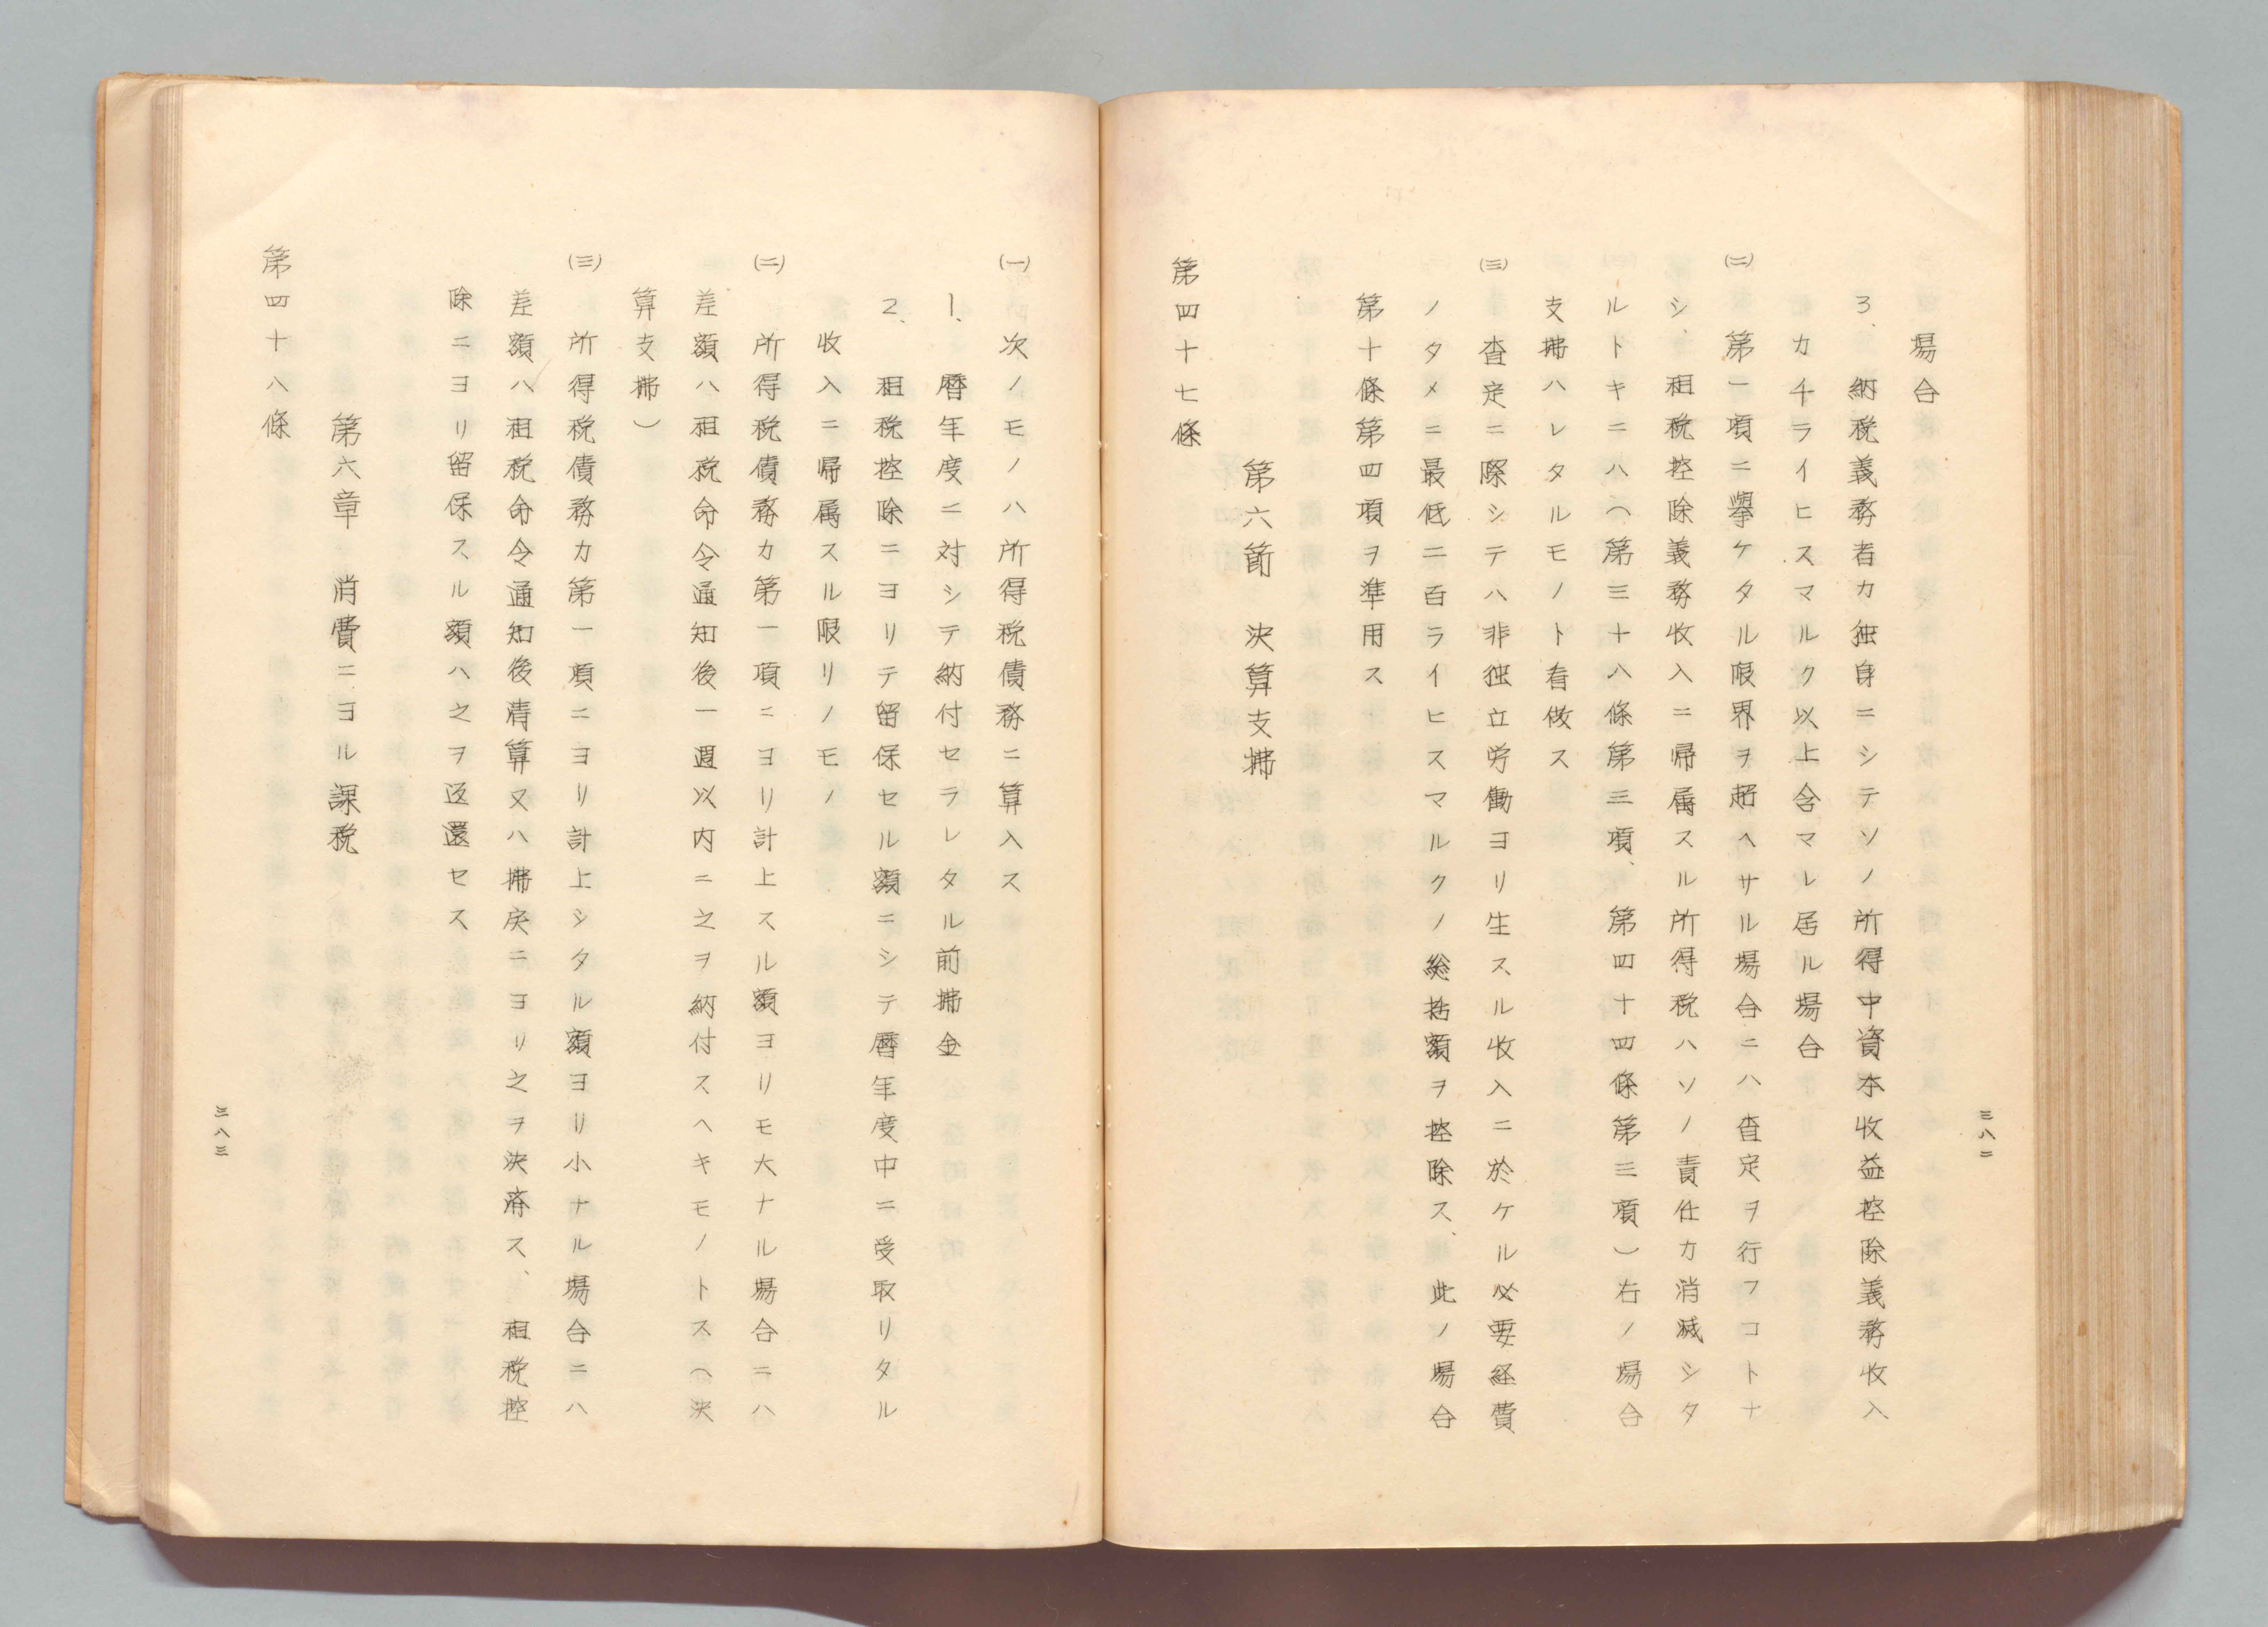 三八二
場合
3、納税義務者カ独身ニシテソノ所得中資本收益控除義務收入
カ千ライヒスマルク以上含マレ居ル場合
㈡ 第一項ニ擧ケタル限界ヲ超ヘサル場合ニハ査定ヲ行フコトナ
シ、租税控除義務收入ニ帰属スル所得税ハソノ責任カ消滅シタ
ルトキニハ（第三十八條第三項、第四十四條第三項）右ノ場合
支拂ハレタルモノト看做ス
㈢ 査定ニ際シテハ非独立労働ヨリ生スル收入ニ於ケル必要経費
ノタメニ最低二百ライヒスマルクノ総括額ヲ控除ス、此ノ場合
第十條第四項ヲ準用ス
第六節 決算支拂
第四十七條
㈠ 次ノモノハ所得税債務ニ算入ス
1、暦年度ニ対シテ納付セラレタル前拂金
2、租税控除ニヨリテ留保セル額ニシテ暦年度中ニ受取リタル
收入ニ帰属スル限リノモノ
㈡ 所得税債務カ第一項ニヨリ計上スル額ヨリモ大ナル場合ニハ
差額ハ租税命令通知後一週以内ニ之ヲ納付スヘキモノトス（決
算支拂）
㈢ 所得税債務カ第一項ニヨリ計上シタル額ヨリ小ナル場合ニハ
差額ハ租税命令通知後清算又ハ拂戻ニヨリ之ヲ決済ス、租税控
除ニヨリ留保スル額ハ之ヲ返還セス
第六章 消費ニヨル課税
第四十八條
三八三